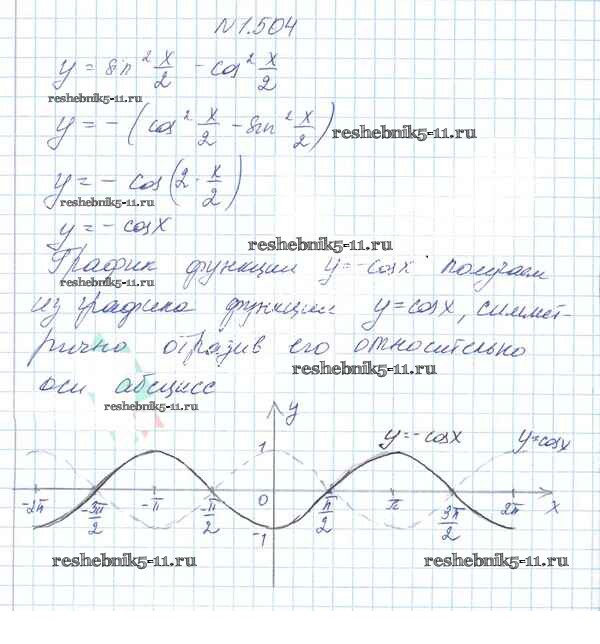 N 1.504
y = sin² x/2 - cos² x/2
reshebnik5-11.ru
y = - (cos² x/2 - sin² x/2)
reshebnik5-11.ru
y = - cos (2 · x/2)
reshebnik5-11.ru
y = - cos x
reshebnik5-11.ru
График функции y = -cos x получаем
из графика функции y = cos x, симмет-
рично отразив его относительно
reshebnik5-11.ru
оси абсцисс
reshebnik5-11.ru
y
1 y = -cos x y = cos x
-2π -3π/2 -π -π/2 0 π/2 π 3π/2 2π x
-1
reshebnik5-11.ru reshebnik5-11.ru